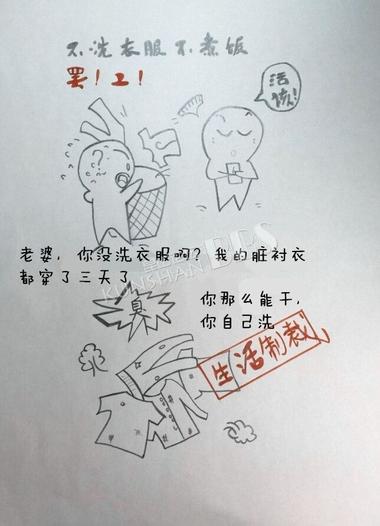 不洗衣服不煮饭
罢！工！
活该！
老婆，你没洗衣服啊？我的脏衬衣
都穿了三天了
KUNSHAN BBS
臭
你那么能干，
你自己洗
生活制裁